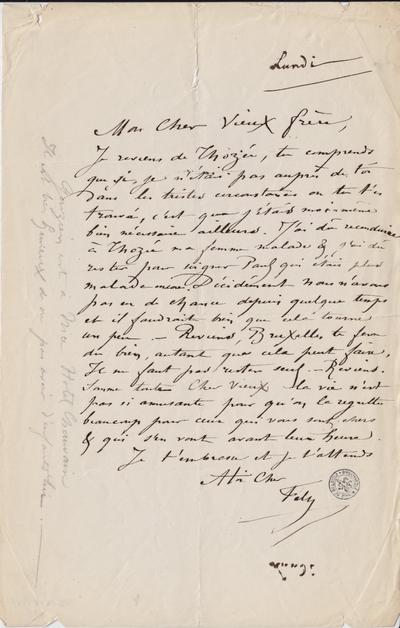 Lundi
Mon Cher Vieux frère,
Je reviens de Thozée, tu comprends
que si je n'étais pas auprès de toi
dans les tristes circonstances où tu t'es
trouvé, c'est que j'étais moi-même
bien nécessaire ailleurs. J'ai dû reconduire
à Thozée ma femme malade & j'ai dû
rester pour soigner Paul qui était plus
malade encore. Décidément nous n'avons
pas eu de chance depuis quelque temps
et il faudrait bien que cela tourne
un peu. – Reviens, Bruxelles te fera
du bien, autant que cela peut faire,
Il ne faut pas rester seul – Reviens.
Somme toute Cher Vieux – la vie n'est
pas si amusante pour qu'on la regrette
beaucoup pour ceux qui vous sont chers
& qui s'en vont avant leur heure.
Je t'embrasse et je t'attends
A toi Cher
Fély